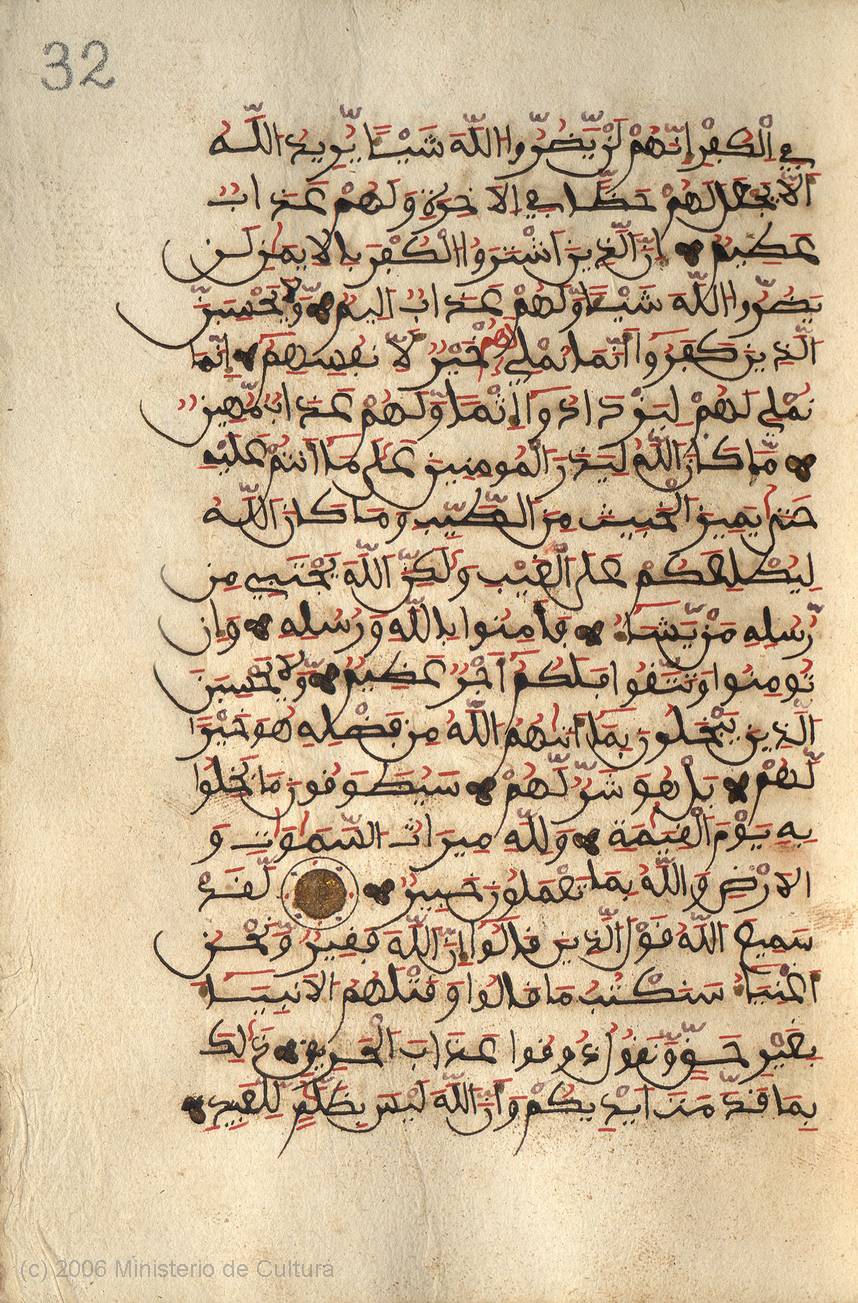 32
في الْكُفْرِ إِنَّهُمْ لَنْ يَّضُرُّوا اللَّهَ شَيْـًٔا يُّرِيدُ اللَّهُ
أَلَّا يَجْعَلَ لَهُمْ حَظًّا في الَاخِرَةِ وَلَهُمْ عَذَابٌ
عَظِيمٌ إِنَّ الَّذِينَ اَشْتَرَوُا الْكُفْرَ بِالِايمَٰنِ لَنْ
يَّضُرُّوا اللَّهَ شَيْـًٔا وَّلَهُمْ عَذَابٌ اَلِيمٌ وَّلَا يَحْسِبَنَّ
الَّذِينَ كَفَرُوا أَنَّمَا نُمْلِي لَهُمْ خَيْرٌ لِّأَنفُسِهِمْ إِنَّمَا
نُمْلِي لَهُمْ لِيَزْدَادُوا إِثْمًا وَّلَهُمْ عَذَابٌ مُّهِينٌ
مَّا كَانَ اللَّهُ لِيَذَرَ الْمُومِنِينَ عَلَىٰ مَا أَنتُمْ عَلَيْهِ
حَتَّىٰ يَمِيزَ الْخَبِيثَ مِنَ الطَّيِّبِ وَمَا كَانَ اللَّهُ
لِيُطْلِعَكُمْ عَلَى الْغَيْبِ وَلَٰكِنَّ اللَّهَ يَجْتَبِي مِن
رُّسُلِهِ مَنْ يَّشَاءُ فَـَٔامِنُوا بِاللَّهِ وَرُسُلِهِ وَإِن
تُومِنُوا وَتَتَّقُوا فَلَكُمْ أَجْرٌ عَظِيمٌ وَّلَا يَحْسِبَنَّ
الَّذِينَ يَبْخَلُونَ بِمَا ءَاتَىٰهُمُ اللَّهُ مِن فَضْلِهِ هُوَ خَيْرًا
لَّهُمْ بَلْ هُوَ شَرٌّ لَّهُمْ سَيُطَوَّقُونَ مَا بَخِلُوا
بِهِ يَوْمَ الْقِيَٰمَةِ وَلِلَّهِ مِيرَاثُ السَّمَٰوَٰتِ وَ
الَارْضِ وَاللَّهُ بِمَا تَعْمَلُونَ خَبِيرٌ لَّقَدْ
سَمِعَ اللَّهُ قَوْلَ الَّذِينَ قَالُوا إِنَّ اللَّهَ فَقِيرٌ وَّنَحْنُ
أَغْنِيَاءُ سَنَكْتُبُ مَا قَالُوا وَقَتْلَهُمُ الَانۢبِيَاءَ
بِغَيْرِ حَقٍّ وَّنَقُولُ ذُوقُوا عَذَابَ الْحَرِيقِ ذَٰلِكَ
بِمَا قَدَّمَتَ ايْدِيكُمْ وَأَنَّ اللَّهَ لَيْسَ بِظَلَّٰمٍ لِّلْعَبِيدِ
(c) 2006 Ministerio de Cultura